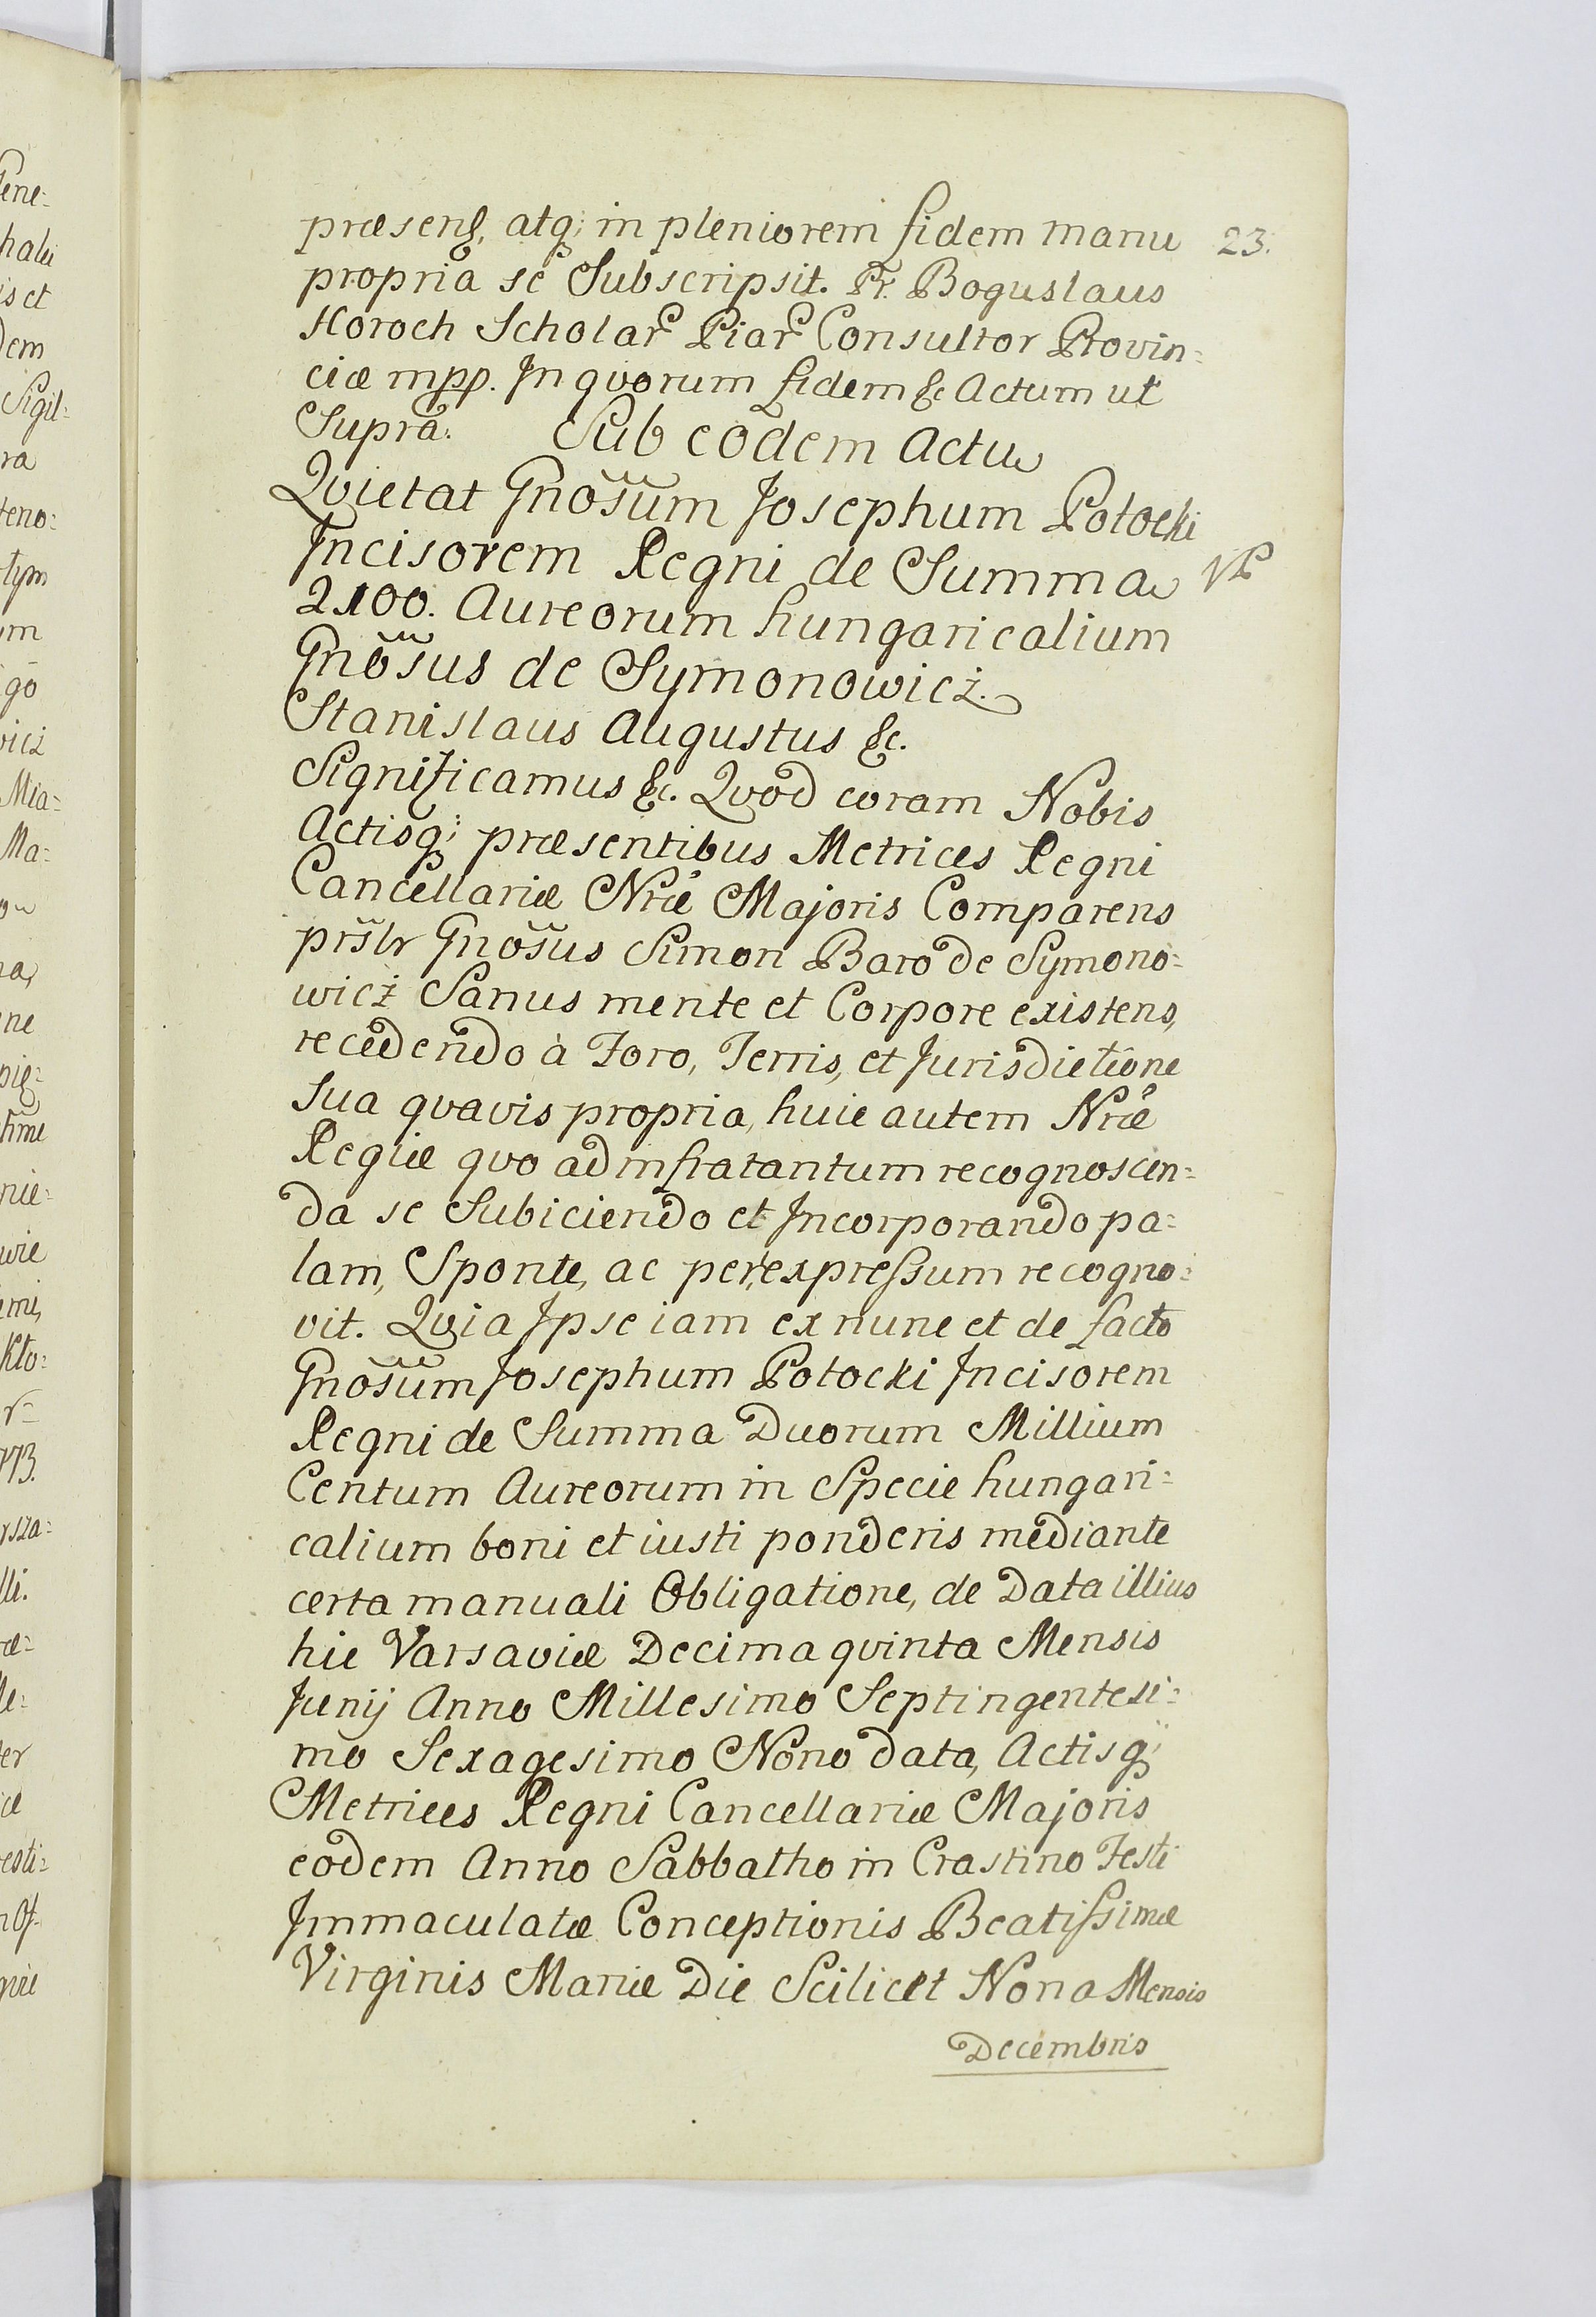 præsens, atq; in pleniorem fidem manu 23.
propriâ se Subscripsit. Pr. Boguslaus
Horoch Scholar Piar Consultor Provin=
ciæ mpp. In qvorum fidem &c Actum ut
Supra. Sub eodem Actu
Qvietat Gnosum Josephum Potocki
Incisorem Regni de Summa
2100. Aureorum hungaricalium
Gnosus de Symonowicz.
Stanislaus Augustus &c.
Significamus &c. Qvod coram Nobis
Actisq; præsentibus Metrices Regni
Cancellariæ Nræ Majoris Comparens
prsltr Gnosus Simon Baro de Symono=
wicż Sanus mente et Corpore existens,
recedendo à Foro, Terris, et Jurisdictione
Sua qvavis propria, huic autem Nræ
Regiæ qvo ad infratantum recognoscen=
da se Subiciendo et Incorporando pa=
lam, Sponte, ac per expressum recogno=
vit. Qvia Ipse iam ex nunc et de facto
Gnosum Josephum Potocki Incisorem
Regni de Summa Duorum Millium
Centum Aureorum in Specie hungari=
calium boni et iusti ponderis mediante
certa manuali Obligatione, de Data illius
hic Varsaviæ Decima qvinta Mensis
Junij Anno Millesimo Septingentesi=
mo Sexagesimo Nono data, Actisq;
Metrices Regni Cancellariæ Majoris
eodem Anno Sabbatho in Crastino Festi
Immaculatæ Conceptionis Beatissimæ
Virginis Mariæ Die Scilicet Nona Mensis
Decembris